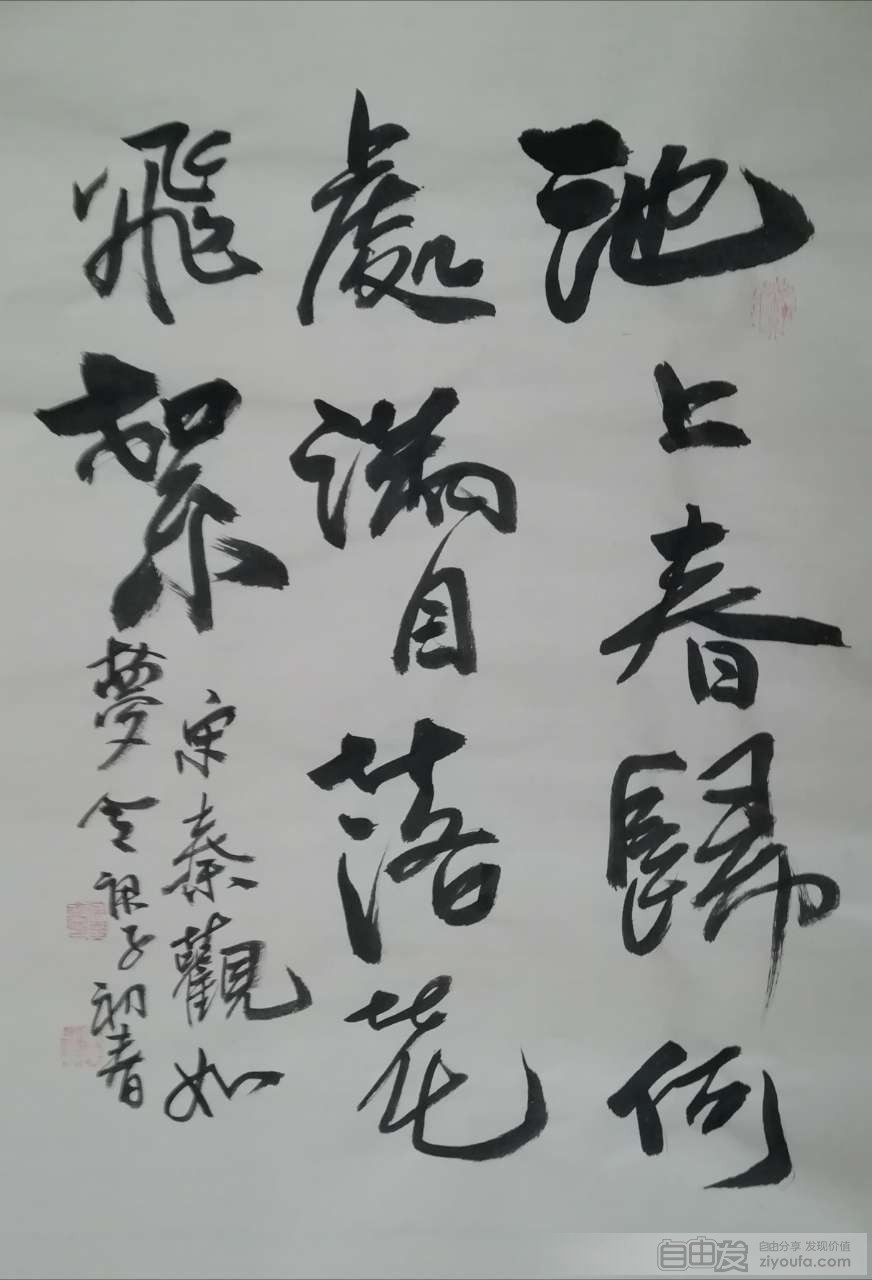 池上春歸何
處滿目落花
飛絮
宋秦觀如
夢令 子初春
自由发
自由分享 发现价值
ziyoufa.com